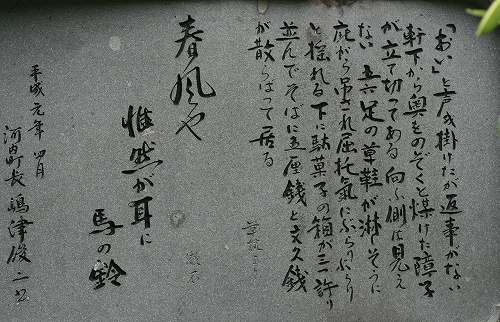 「おい」と声を掛けたが返事がない
軒下から奥をのぞくと煤けた障子
が立て切ってある 向ふ側は見え
ない 五六足の草鞋が淋しそうに
庇から吊され屈托氣にふらりふらり
と揺れる 下に駄菓子の箱が三つ許り
並んでそばに五厘銭と文久銭
が散らばって居る
草枕より
漱石
春風や
惟然が耳に
馬の鈴
平成元年四月
河内町長 嶋津俊